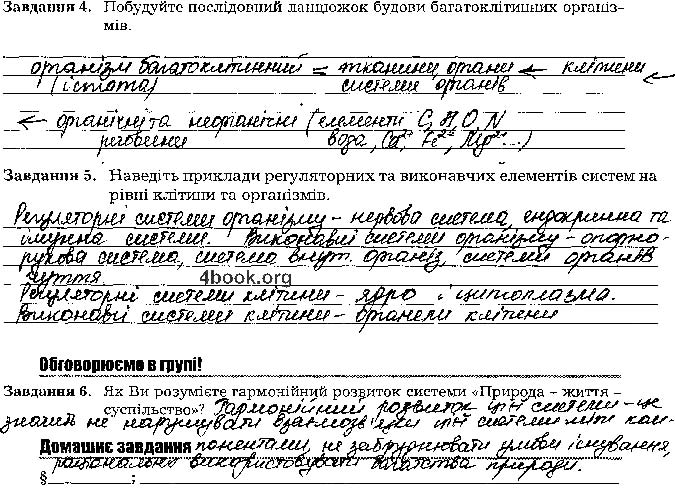 Завдання 4. Побудуйте послідовний ланцюжок будови багатоклітинних організ-
мів.
організм багатоклітинний = тканини, органи ← клітини
(істота) системи органів ←
← органічні та неорганічні (елементи C, H, O, N
речовини вода, Ca²⁺, Fe²⁺, Mg²⁺...)
Завдання 5. Наведіть приклади регуляторних та виконавчих елементів систем на
рівні клітини та організмів.
Регуляторні системи організму - нервова система, ендокринна та
імунна системи. Виконавчі системи організму - опорно-
рухова система, система внут. органів, системи органів
чуття.
4book.org
Регуляторні системи клітини - ядро і цитоплазма.
Виконавчі системи клітини - органели клітини
Обговорюємо в групі!
Завдання 6. Як Ви розумієте гармонійний розвиток системи «Природа – життя –
суспільство»? Гармонійний розвиток цієї системи - це
значить не порушувати взаємозв'язки цієї системи між ком-
Домашнє завдання понентами, не забруднювати умови існування,
раціонально використовувати багатства природи.
§ ;